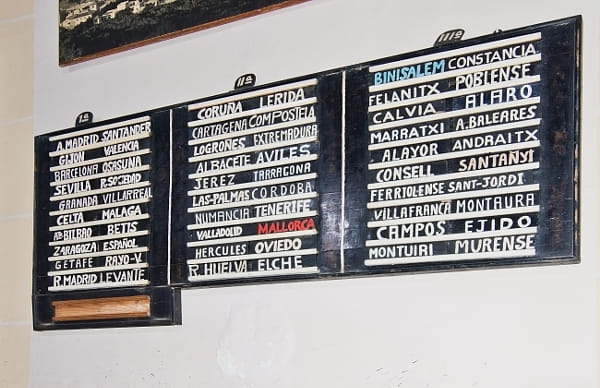 1ª
A.MADRID SANTANDER
GIJON VALENCIA
BARCELONA OSASUNA
SEVILLA R.SOCIEDAD
GRANADA VILLARREAL
CELTA MALAGA
AT.BILBAO BETIS
ZARAGOZA ESPAÑOL
GETAFE RAYO-V
R.MADRID LEVANTE
IIª
CORUÑA LERIDA
CARTAGENA COMPOSTELA
LOGROÑES EXTREMADURA
ALBACETE AVILES
JEREZ TARRAGONA
LAS-PALMAS CORDOBA
NUMANCIA TENERIFE
VALLADOLID MALLORCA
HERCULES OVIEDO
R.HUELVA ELCHE
IIIª
BINISALEM CONSTANCIA
FELANITX POBLENSE
CALVIA ALARO
MARRATXI A.BALEARES
ALAYOR ANDRAITX
CONSELL SANTAÑYI
FERRIOLENSE SANT-JORDI
VILLAFRANCA MONTAURA
CAMPOS EJIDO
MONTUIRI MURENSE